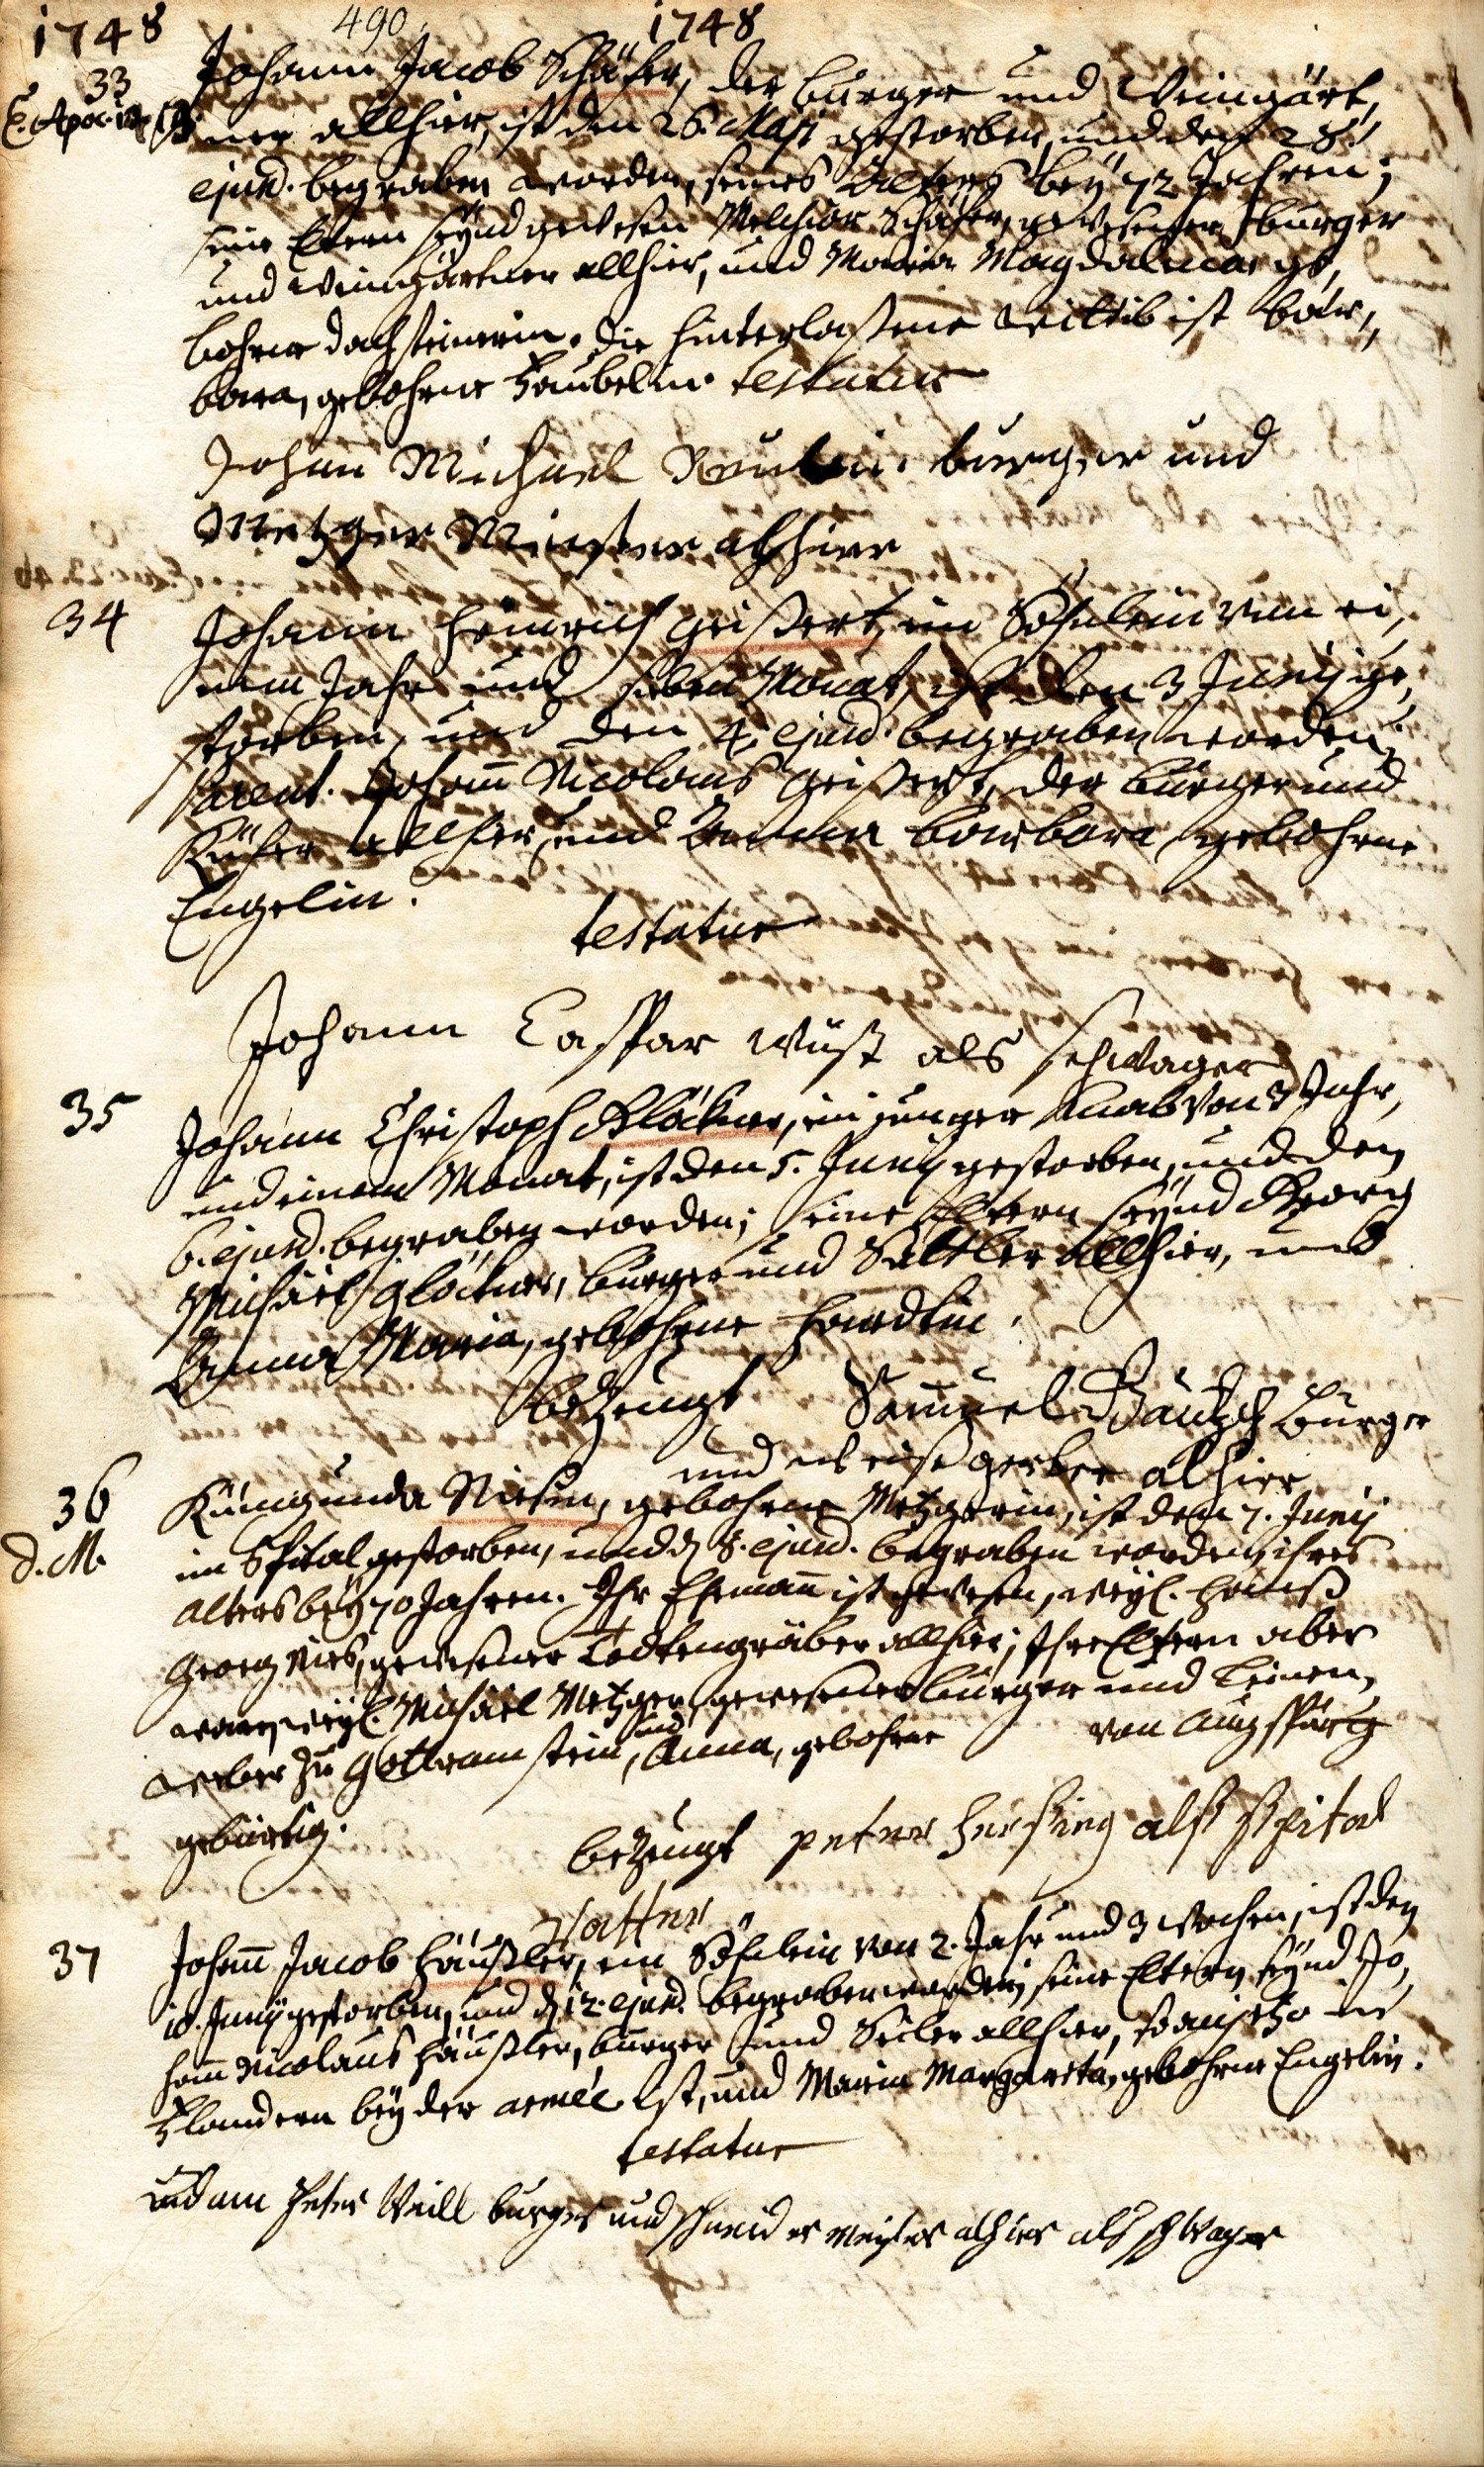 1748 490. 1748
33
Johann Jacob Schäfer, der burger und Weingärt,
E. Apoc. 14.
ner allhier, ist den 26. Maji gestorben, und den 28.
ejusd. begraben worden, seines Alters bey 72 Jahren;
seine Eltern seynd gewesen Melchior Schäfer, gewesener burger
und Weingärtner allhier, und Maria Magdalena, ge,
bohrne Dachsteinerin. Die hinterlaßene Wittib ist bar,
bara, gebohrne Haubelin. testatur
Johann Michael burger und
Metzger Meister alhier
34
Johann Heinrich Geißert, ein Söhnlein von ei,
nem Jahr und sieben Monat, ist den 3 Junij ge,
storben, und den 4. ejusd. begraben worden;
Parent. Johann Nicolaus Geißert, der burger und
Küfer allhier, und Anna barbara, gebohrne
Engelin.
testatur
Johann Caspar Wüst als schwager
35
Johann Christoph Glöckner, ein junger Knab von 7 Jahr,
und einem Monat, ist den 5. Junij gestorben, und den
6. ejusd. begraben worden; seine Eltern seynd Georg
Michael Glöckner, burger und Sattler allhier, und
Anna Maria, gebohrne Hardtin.
bezeugt Samuel Bautsch burger
und weisgerber alhier
36
Kunigunda Niesin, gebohrne Metzgerin, ist den 7. Junij
D. M.
im Spital gestorben, und d. 8. ejusd. begraben worden, ihres
Alters bey 70 Jahren. Ihr Ehemann ist gewesen, weyl. Hanß
Georg Nies, gewesener Todtengräber allhier; Ihre Eltern aber
waren weyl. Michael Metzger, gewesener burger und Leinen,
weber zu Gottramstein, und Anna, gebohrne von Augspurg
gebürtig.
bezeugt peter als spital
Vatter
37
Johann Jacob Häußler, ein Söhnlein von 2. Jahr und 3 Wochen, ist den
10. Junij gestorben, und d. 12. ejusd. begraben worden; seine Eltern seynd Jo,
hann Nicolaus Häußler, burger und Seiler allhier, so anjetzo in
Flandern bey der armee ist, und Maria Margaretha, gebohrne Engelin.
testatur
Adam Peter Weill burger und schneider meister alhier als schwager